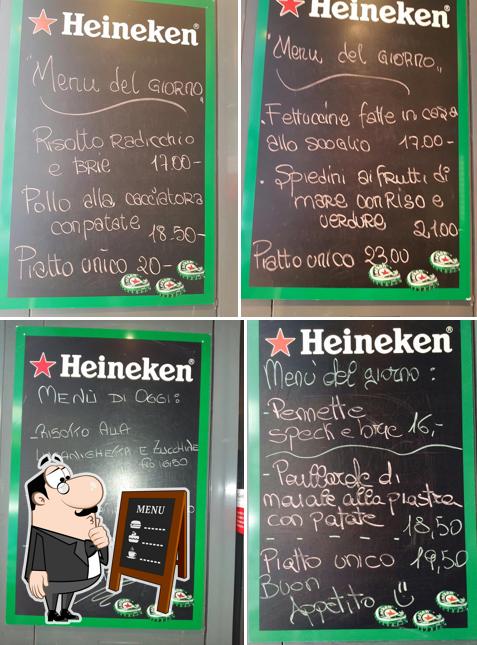 Heineken
"Menu del GIORNO"
Risotto Radicchio
e BRIE 17.00-
Pollo alla cacciatora
con patate
18.50-
Piatto unico 20-
Heineken
"Menu del GIORNO"
.Fettuccine fatte in casa
allo scoglio 17.00-
. Spiedini ai frutti di
mare con Riso e
verdure
21.00
Piatto unico 23.00
Heineken
MENÙ DI OGGI:
-RISOTTO ALLA
LUGANIGHETTA E ZUCCHINE
16.50
MENU
Heineken
Menù del giorno:
-Pennette
speck e brie 16,-
di
maiale alla piastra
con patate
18,50
Piatto unico 19,50
Buon
Appetito